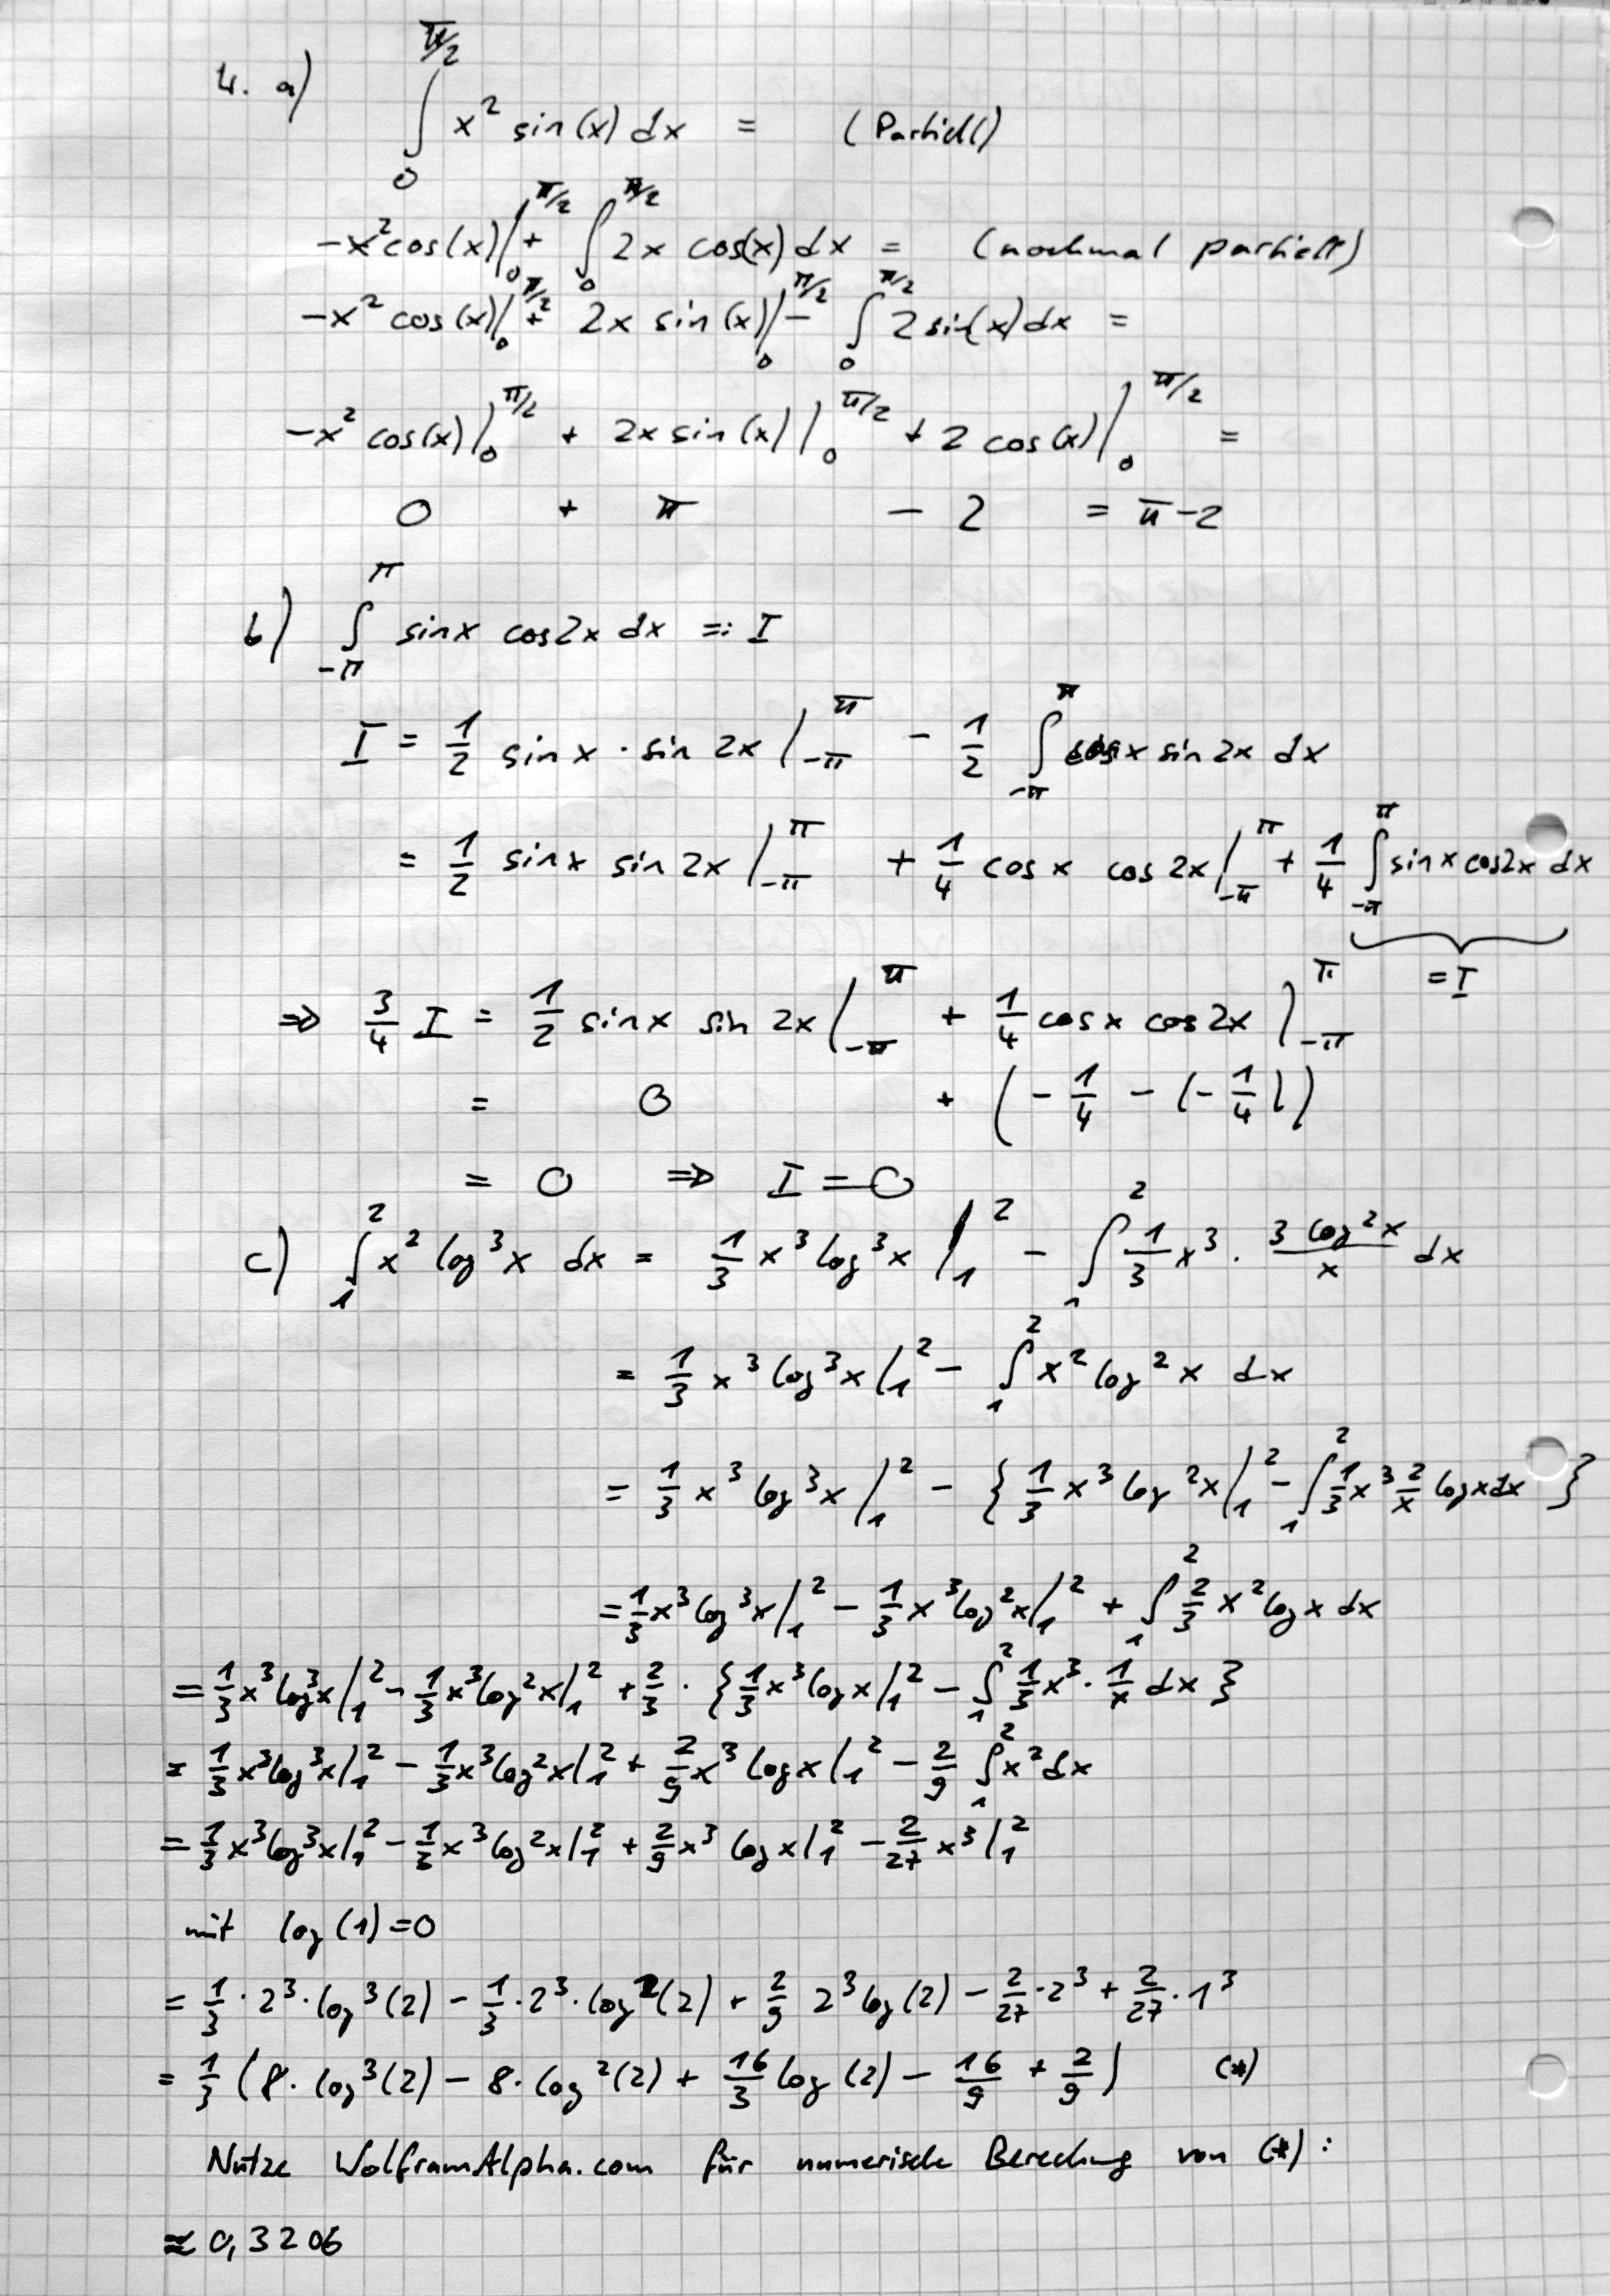 4. a) ∫₀^{π/2} x² sin(x) dx = (Partiell)
-x² cos(x) |₀^{π/2} + ∫₀^{π/2} 2x cos(x) dx = (nochmal partiell)
-x² cos(x) |₀^{π/2} + 2x sin(x) |₀^{π/2} - ∫₀^{π/2} 2 sin(x) dx =
-x² cos(x) |₀^{π/2} + 2x sin(x) |₀^{π/2} + 2 cos(x) |₀^{π/2} =
0 + π - 2 = π-2
b) ∫_{-π}^{π} sinx cos2x dx =: I
I = 1/2 sin x · sin 2x |_{-π}^{π} - 1/2 ∫_{-π}^{π} cos x sin 2x dx
= 1/2 sinx sin 2x |_{-π}^{π} + 1/4 cos x cos 2x |_{-π}^{π} + 1/4 ∫_{-π}^{π} sin x cos2x dx
= I
⇒ 3/4 I = 1/2 sinx sin 2x |_{-π}^{π} + 1/4 cos x cos 2x |_{-π}^{π}
= 0 + (- 1/4 - (- 1/4))
= 0 ⇒ I = 0
c) ∫₁² x² log³x dx = 1/3 x³ log³x |₁² - ∫₁² 1/3 x³ · (3 log²x)/x dx
= 1/3 x³ log³x |₁² - ∫₁² x² log² x dx
= 1/3 x³ log³x |₁² - { 1/3 x³ log²x |₁² - ∫₁² 1/3 x³ 2/x log x dx }
= 1/3 x³ log³x |₁² - 1/3 x³ log²x |₁² + ∫₁² 2/3 x² log x dx
= 1/3 x³ log³x |₁² - 1/3 x³ log²x |₁² + 2/3 · { 1/3 x³ log x |₁² - ∫₁² 1/3 x³ · 1/x dx }
= 1/3 x³ log³x |₁² - 1/3 x³ log²x |₁² + 2/9 x³ log x |₁² - 2/9 ∫₁² x² dx
= 1/3 x³ log³x |₁² - 1/3 x³ log²x |₁² + 2/9 x³ log x |₁² - 2/27 x³ |₁²
mit log(1)=0
= 1/3 · 2³ · log³(2) - 1/3 · 2³ · log²(2) + 2/9 2³ log(2) - 2/27 · 2³ + 2/27 · 1³
= 1/3 (8 · log³(2) - 8 · log²(2) + 16/3 log(2) - 16/9 + 2/9) (*)
Nutze WolframAlpha.com für numerische Berechung von (*):
≈ 0,3206